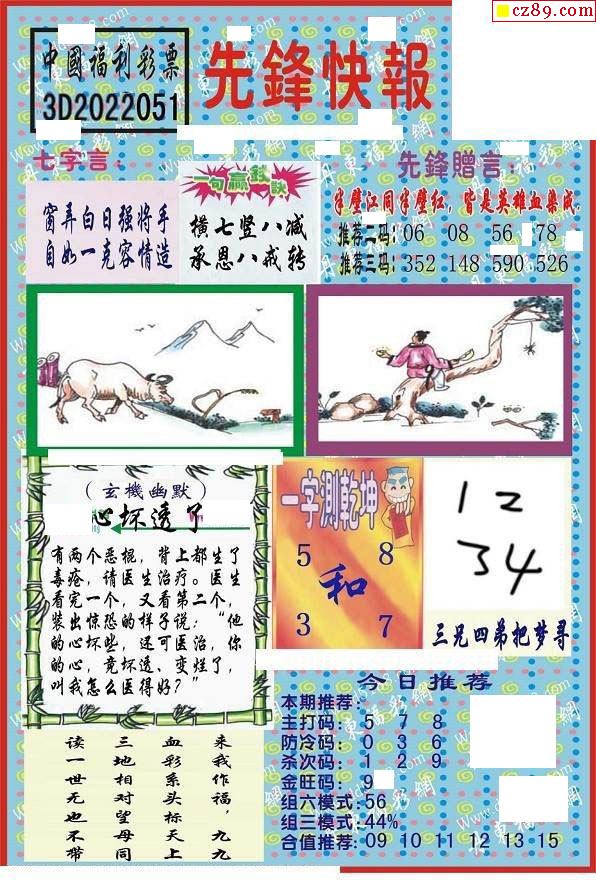 cz89.com
中國福利彩票
3D2022051
先鋒快報
七字言:
窗弄白日强將手
自如一克容情造
一句赢錢訣
橫七竖八减
承恩八戒转
先鋒贈言:
半壁江同半壁红，皆是英雄血染成.
推荐二码: 06 08 56 78
推荐三码: 352 148 590 526
(玄機幽默)
心坏透了
有两个恶棍，背上都生了
毒疮，请医生治疗。医生
看完一个，又看第二个，
装出惊恐的样子说：“他
的心坏些，还可医治，你
的心，竟坏透、变烂了，
叫我怎么医得好？”
一字測乾坤
5 8
和
3 7
12
34
三兄四弟把梦寻
今日推荐
本期推荐:
主打码: 5 7 8
防冷码: 0 3 6
杀次码: 1 2 9
金旺码: 9
组六模式:56
组三模式:44%
合值推荐:09 10 11 12 13 15
来我作福，九九
血彩系头标天上
三地相对望母同
读一世无也不带